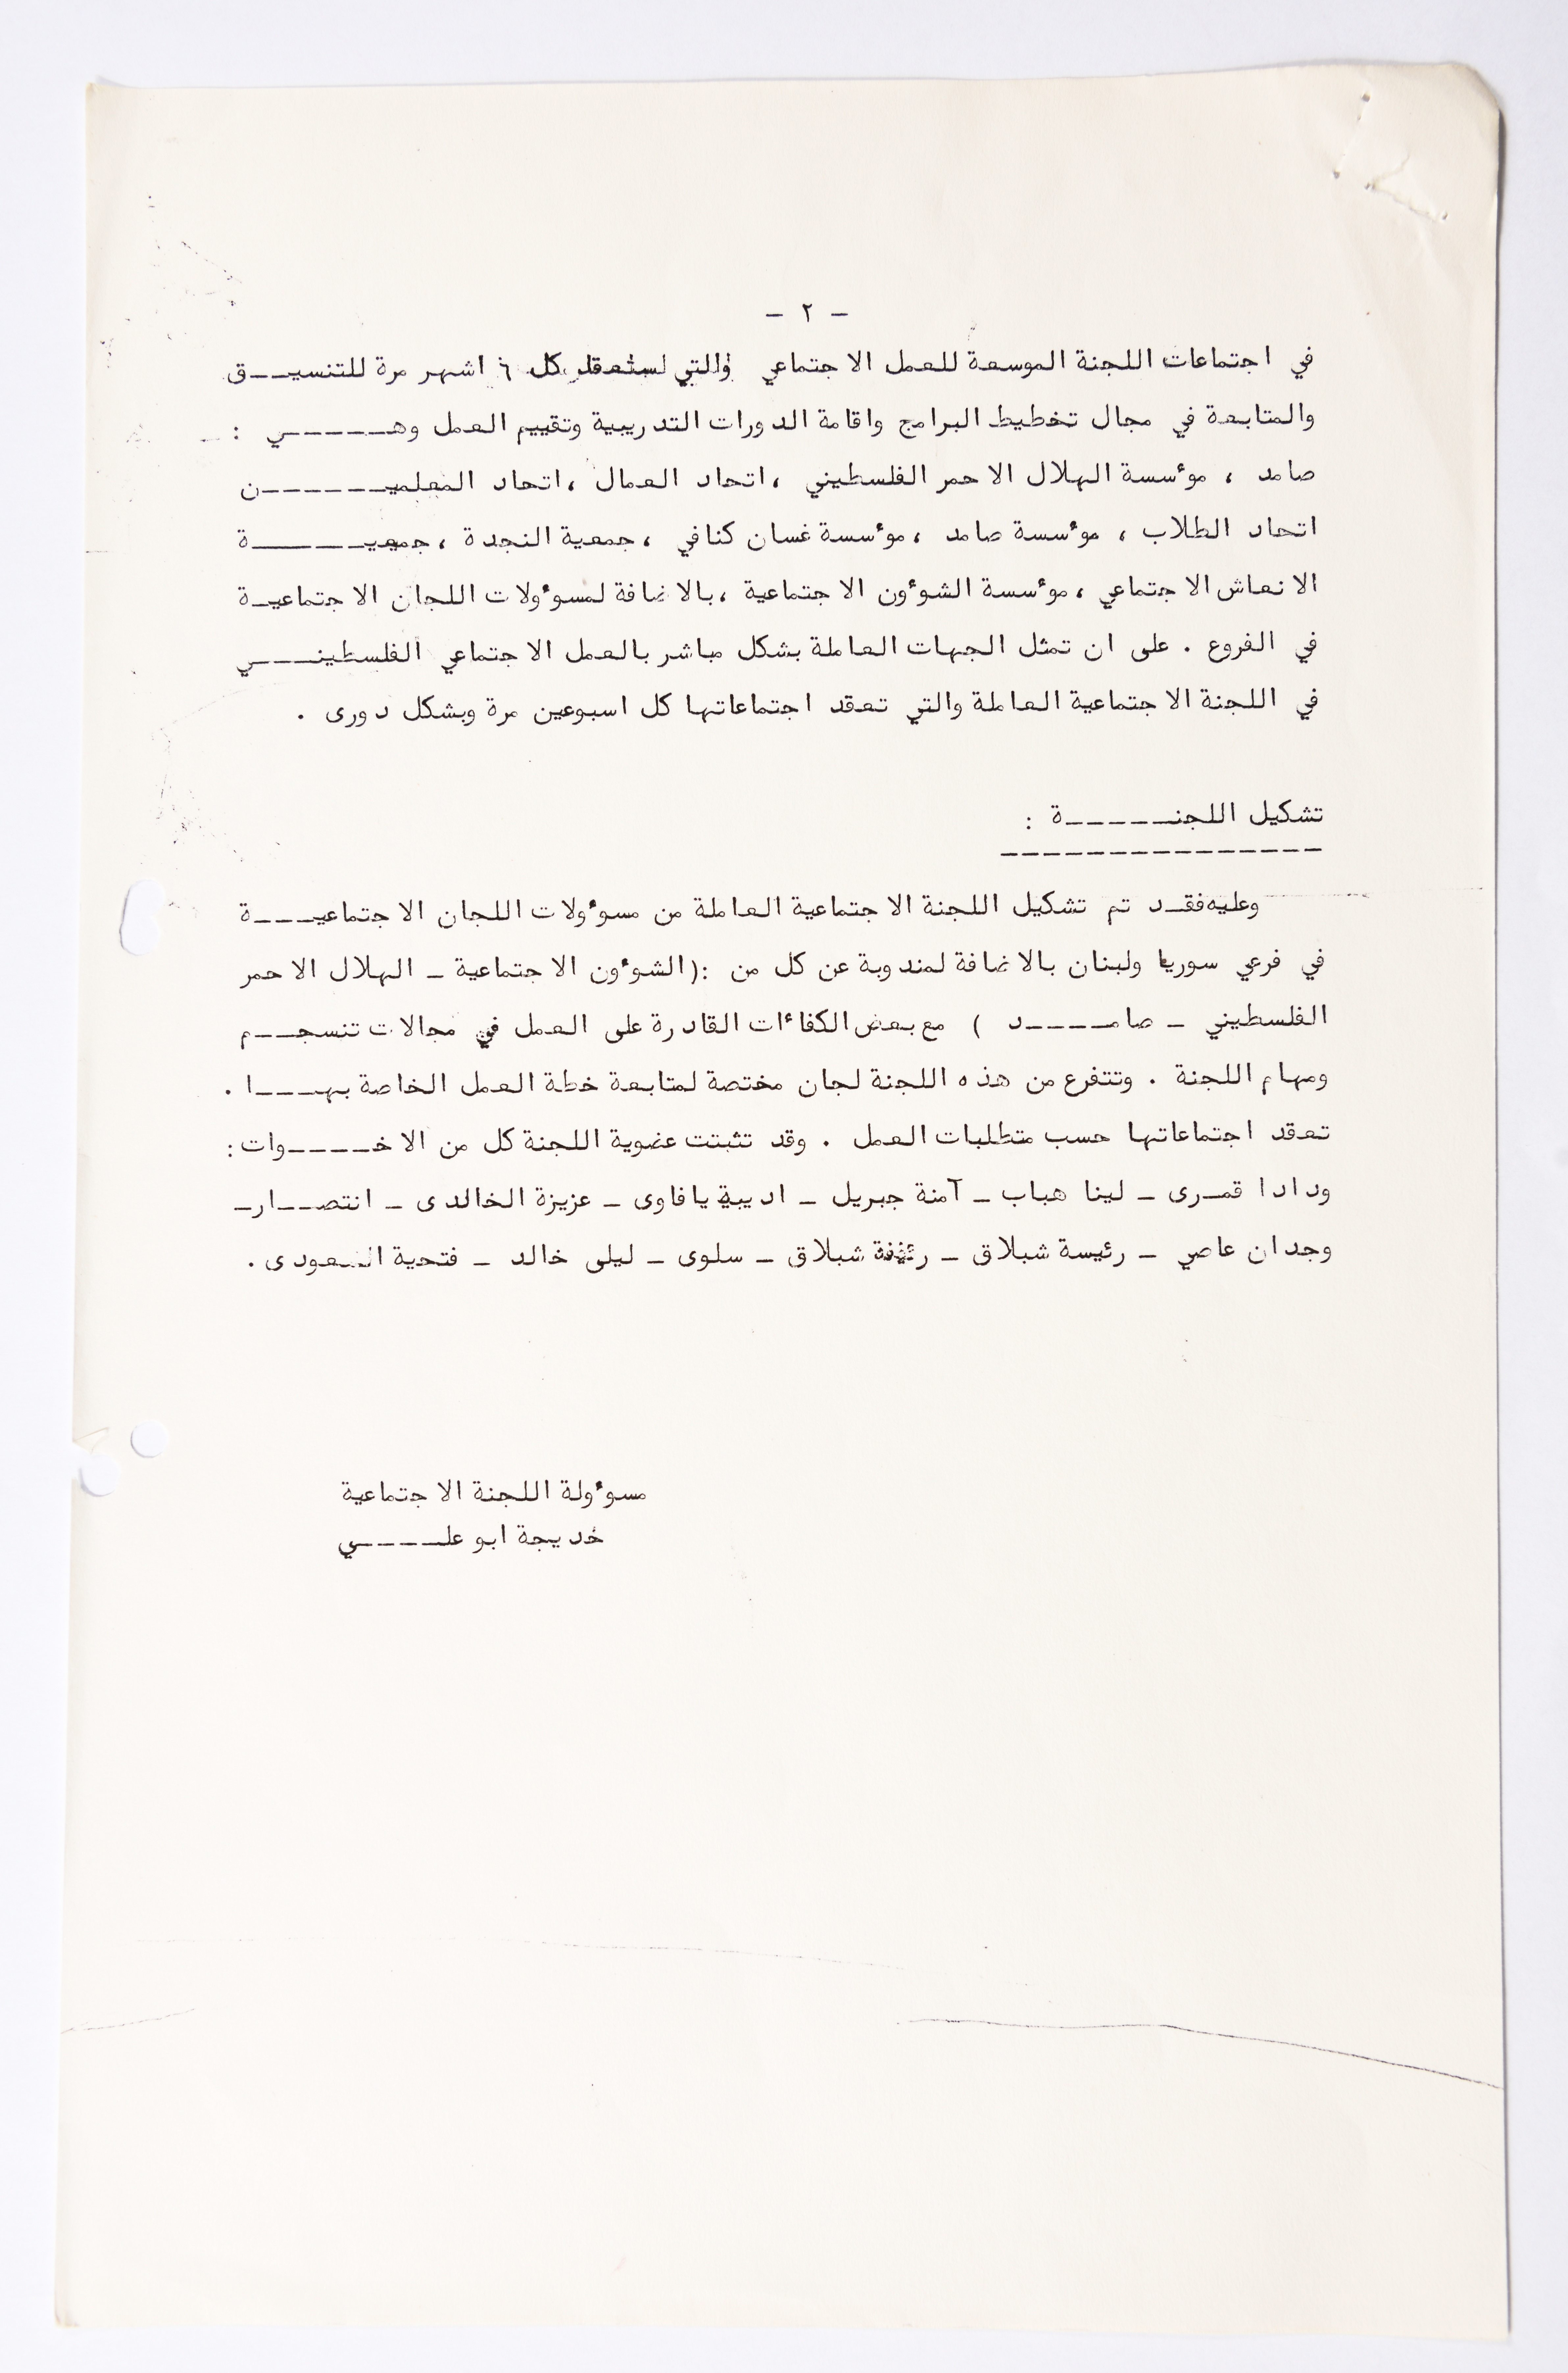 - ٢ -
في اجتماعات اللجنة الموسعة للعمل الاجتماعي والتي ستعقد كل ٦ اشهر مرة للتنسيـــق
والمتابعة في مجال تخطيط البرامج واقامة الدورات التدريبية وتقييم العمل وهـــــي :
صامد ، موٴسسة الهلال الاحمر الفلسطيني ، اتحاد العمال ، اتحاد المعلميـــــــن
اتحاد الطلاب ، موٴسسة صامد ، موٴسسة غسان كنافي ، جمعية النجدة ، جمعيـــــــة
الانعاش الاجتماعي ، موٴسسة الشوٴون الاجتماعية ، بالاضافة لمسوٴولات اللجان الاجتماعيـة
في الفروع . على ان تمثل الجهات العاملة بشكل مباشر بالعمل الاجتماعي الفلسطينـــي
في اللجنة الاجتماعية العاملة والتي تعقد اجتماعاتها كل اسبوعين مرة وبشكل دورى .
تشكيل اللجنــــــة :
وعليه فقـد تم تشكيل اللجنة الاجتماعية العاملة من مسوٴولات اللجان الاجتماعيـــة
في فرعي سوريا ولبنان بالاضافة لمندوبة عن كل من :(الشوٴون الاجتماعية - الهلال الاحمر
الفلسطيني - صامــــد ) مع بعض الكفاءات القادرة على العمل في مجالات تنسجـــم
ومهام اللجنة . وتتفرع من هذه اللجنة لجان مختصة لمتابعة خطة العمل الخاصة بهـــا .
تعقد اجتماعاتها حسب متطلبات العمل . وقد تثبتت عضوية اللجنة كل من الاخــــوات :
ودادا قمـرى - لينا هباب - آمنة جبريل - اديبة يافاوى - عزيزة الخالدى - انتصــار -
وجدان عاصي - رئيسة شبلاق - شبلاق - سلوى - ليلى خالد - فتحية السعودى .
مسوٴولة اللجنة الاجتماعية
خديجة ابو علــــي